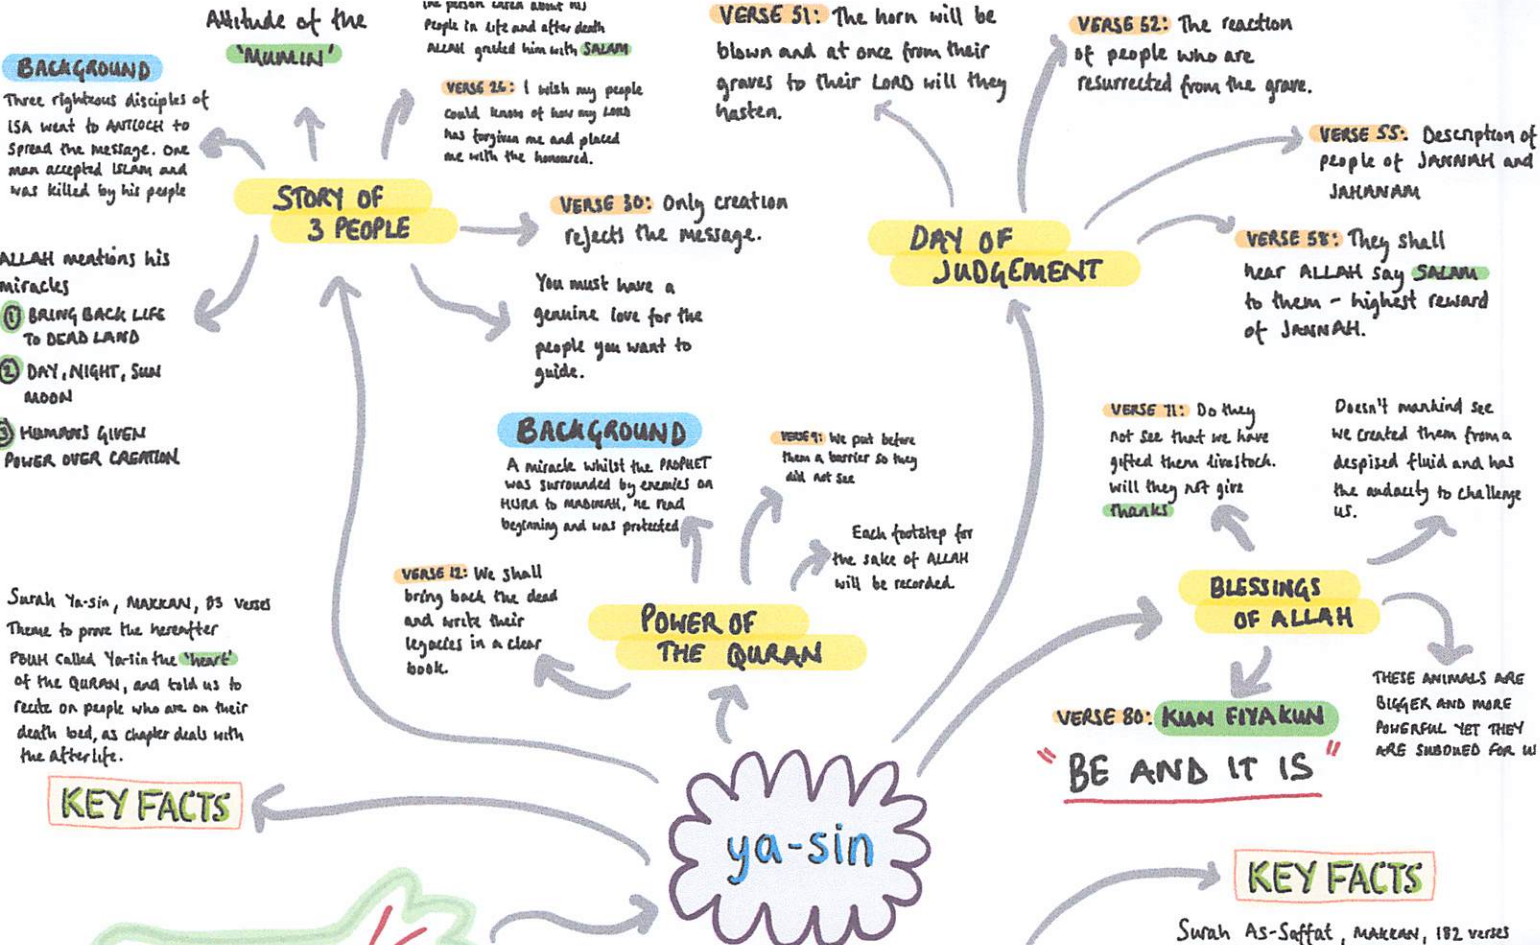 Attitude of the
'MUMIN'
People in life and after death
ALLAH greeted him with SALAM
VERSE 26: I wish my people
could know of how my LORD
has forgiven me and placed
me with the honoured.
BACKGROUND
Three righteous disciples of
ISA went to ANTIOCH to
spread the message. One
man accepted ISLAM and
was killed by his people
STORY OF
3 PEOPLE
VERSE 30: Only creation
rejects the message.
You must have a
genuine love for the
people you want to
guide.
ALLAH mentions his
miracles
① BRING BACK LIFE
TO DEAD LAND
② DAY, NIGHT, SUN
MOON
③ HUMANS GIVEN
POWER OVER CREATION
VERSE 51: The horn will be
blown and at once from their
graves to their LORD will they
hasten.
VERSE 52: The reaction
of people who are
resurrected from the grave.
VERSE 55: Description of
people of JANNAH and
JAHANAM
DAY OF
JUDGEMENT
VERSE 58: They shall
hear ALLAH say SALAM
to them - highest reward
of JANNAH.
BACKGROUND
A miracle whilst the PROPHET
was surrounded by enemies on
HIJRA to MADINAH, he read
beginning and was protected
VERSE 9: We put before
them a barrier so they
did not see
Each footstep for
the sake of ALLAH
will be recorded.
VERSE 12: We shall
bring back the dead
and write their
legacies in a clear
book.
POWER OF
THE QURAN
VERSE 71: Do they
not see that we have
gifted them livestock.
will they not give
thanks
Doesn't mankind see
we created them from a
despised fluid and has
the audacity to challenge
us.
BLESSINGS
OF ALLAH
THESE ANIMALS ARE
BIGGER AND MORE
POWERFUL YET THEY
ARE SUBDUED FOR U
VERSE 80: KUN FIYAKUN
"BE AND IT IS"
Surah Ya-sin, MAKKAN, 83 verses
Theme to prove the hereafter
PBUH called Ya-sin the 'heart'
of the QURAN, and told us to
recite on people who are on their
death bed, as chapter deals with
the afterlife.
KEY FACTS
ya-sin
KEY FACTS
Surah As-Saffat, MAKKAN, 182 verses